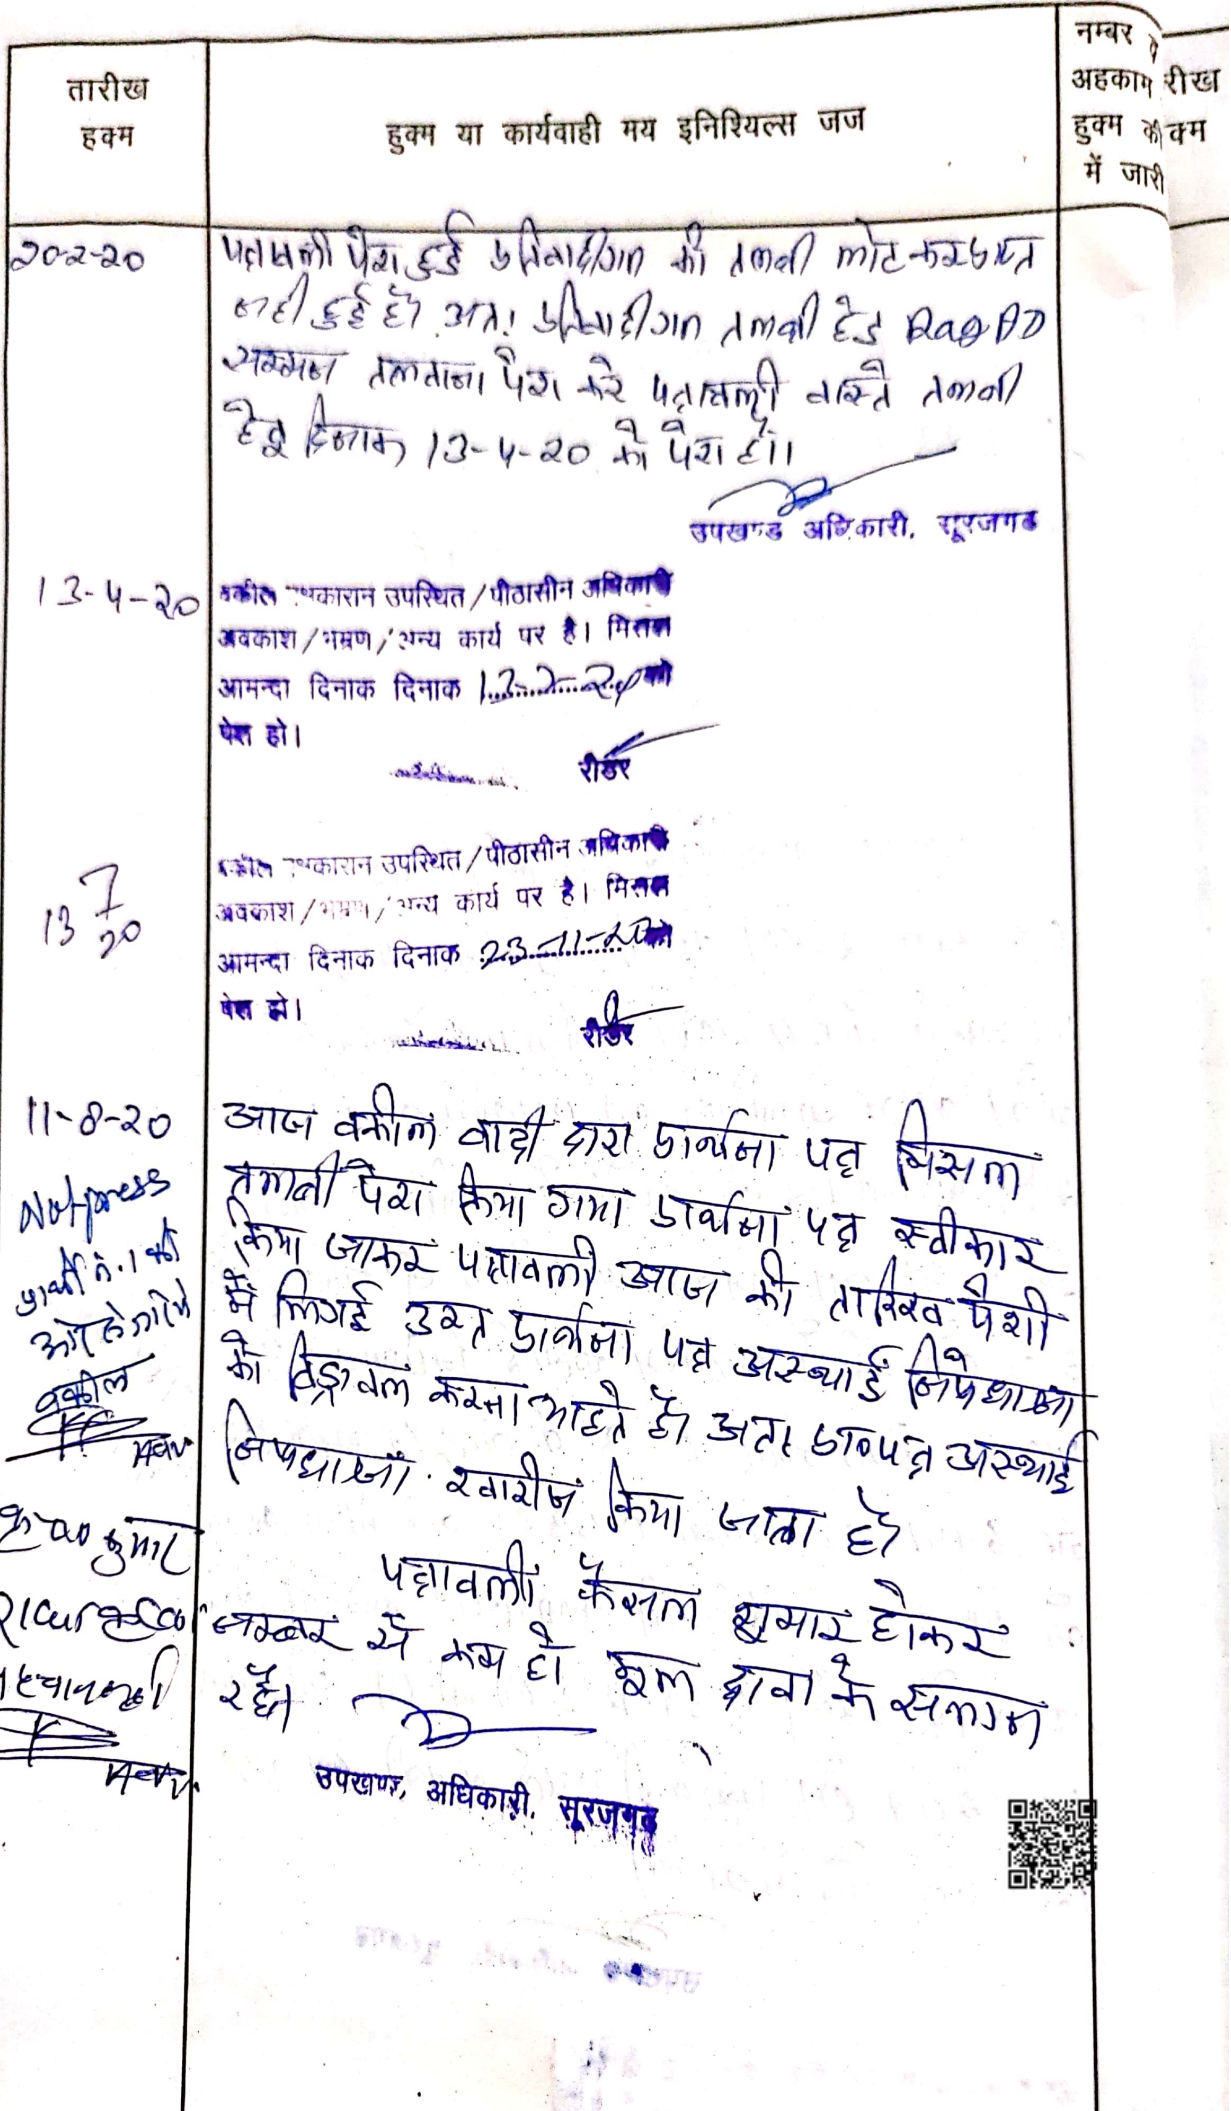 तारीख
हक्म
हुक्म या कार्यवाही मय इनिशियल्स जज
नम्बर
अहकाम
हुक्म की
में जारी
रीख
क्म
20-2-20
पत्रावली पेश हुई प्रतिवादीगण की तलबी लोट कर प्राप्त
नही हुई है। अतः प्रतिवादीगण तलबी हेतु
सम्मन तलवाना पेश करे पत्रावली वास्ते तलबी
हेतु दिनांक 13-4-20 को पेश हो।
उपखण्ड अधिकारी, सूरजगढ
13-4-20
वकील पक्षकारान उपस्थित/पीठासीन अधिकारी
अवकाश/भम्रण/अन्य कार्य पर है। मिसल
आमन्दा दिनाक दिनाक 13-7-20 को
पेश हो।
रीडर
13 7/20
वकील पक्षकारान उपस्थित/पीठासीन अधिकारी
अवकाश/भम्रण/अन्य कार्य पर है। मिसल
आमन्दा दिनाक दिनाक 23-11-20 को
पेश हो।
रीडर
11-8-20
आज वकील वादी द्वारा प्रार्थना पत्र मिसल
तलबी पेश किया गया प्रार्थना पत्र स्वीकार
किया जाकर पत्रावली आज की तारिख पेशी
में लिगई उक्त प्रार्थना पत्र अस्थाई निषेधाज्ञा
को विड्रावल करना चाहते है। अतः प्रा०पत्र अस्थाई
निषेधाज्ञा खारीज किया जाता है।
पत्रावली फैसल शुमार होकर
नम्बर से कम हो मूल दावा के सलग्न
रहे।
उपखण्ड अधिकारी, सूरजगढ
Not press
प्रार्थी नं. 1 की
ओर से
वकील
कुमार